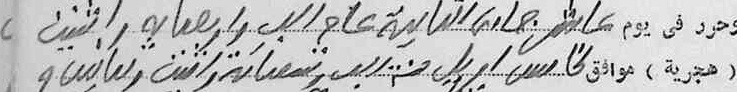 وحرر فى يوم عاشر جمادى الثانية عام الف واربعمائة واثنين
( هجرية ) موافق خامس ابريل سنة الف وتسعمائة واثنين وثمانين و